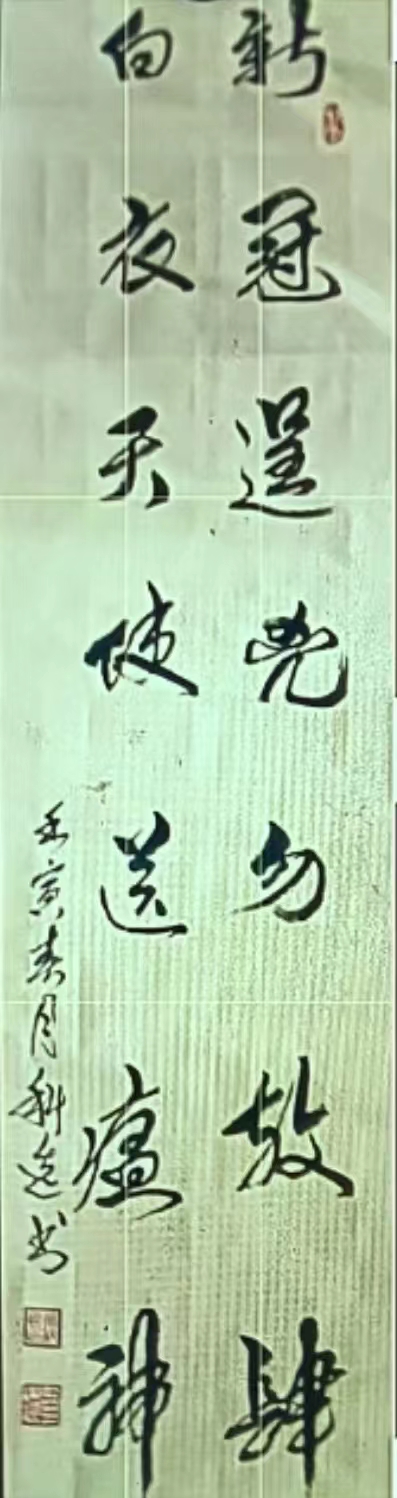 新冠逞兇勿放肆
白衣天使送瘟神
壬寅春月科逸书